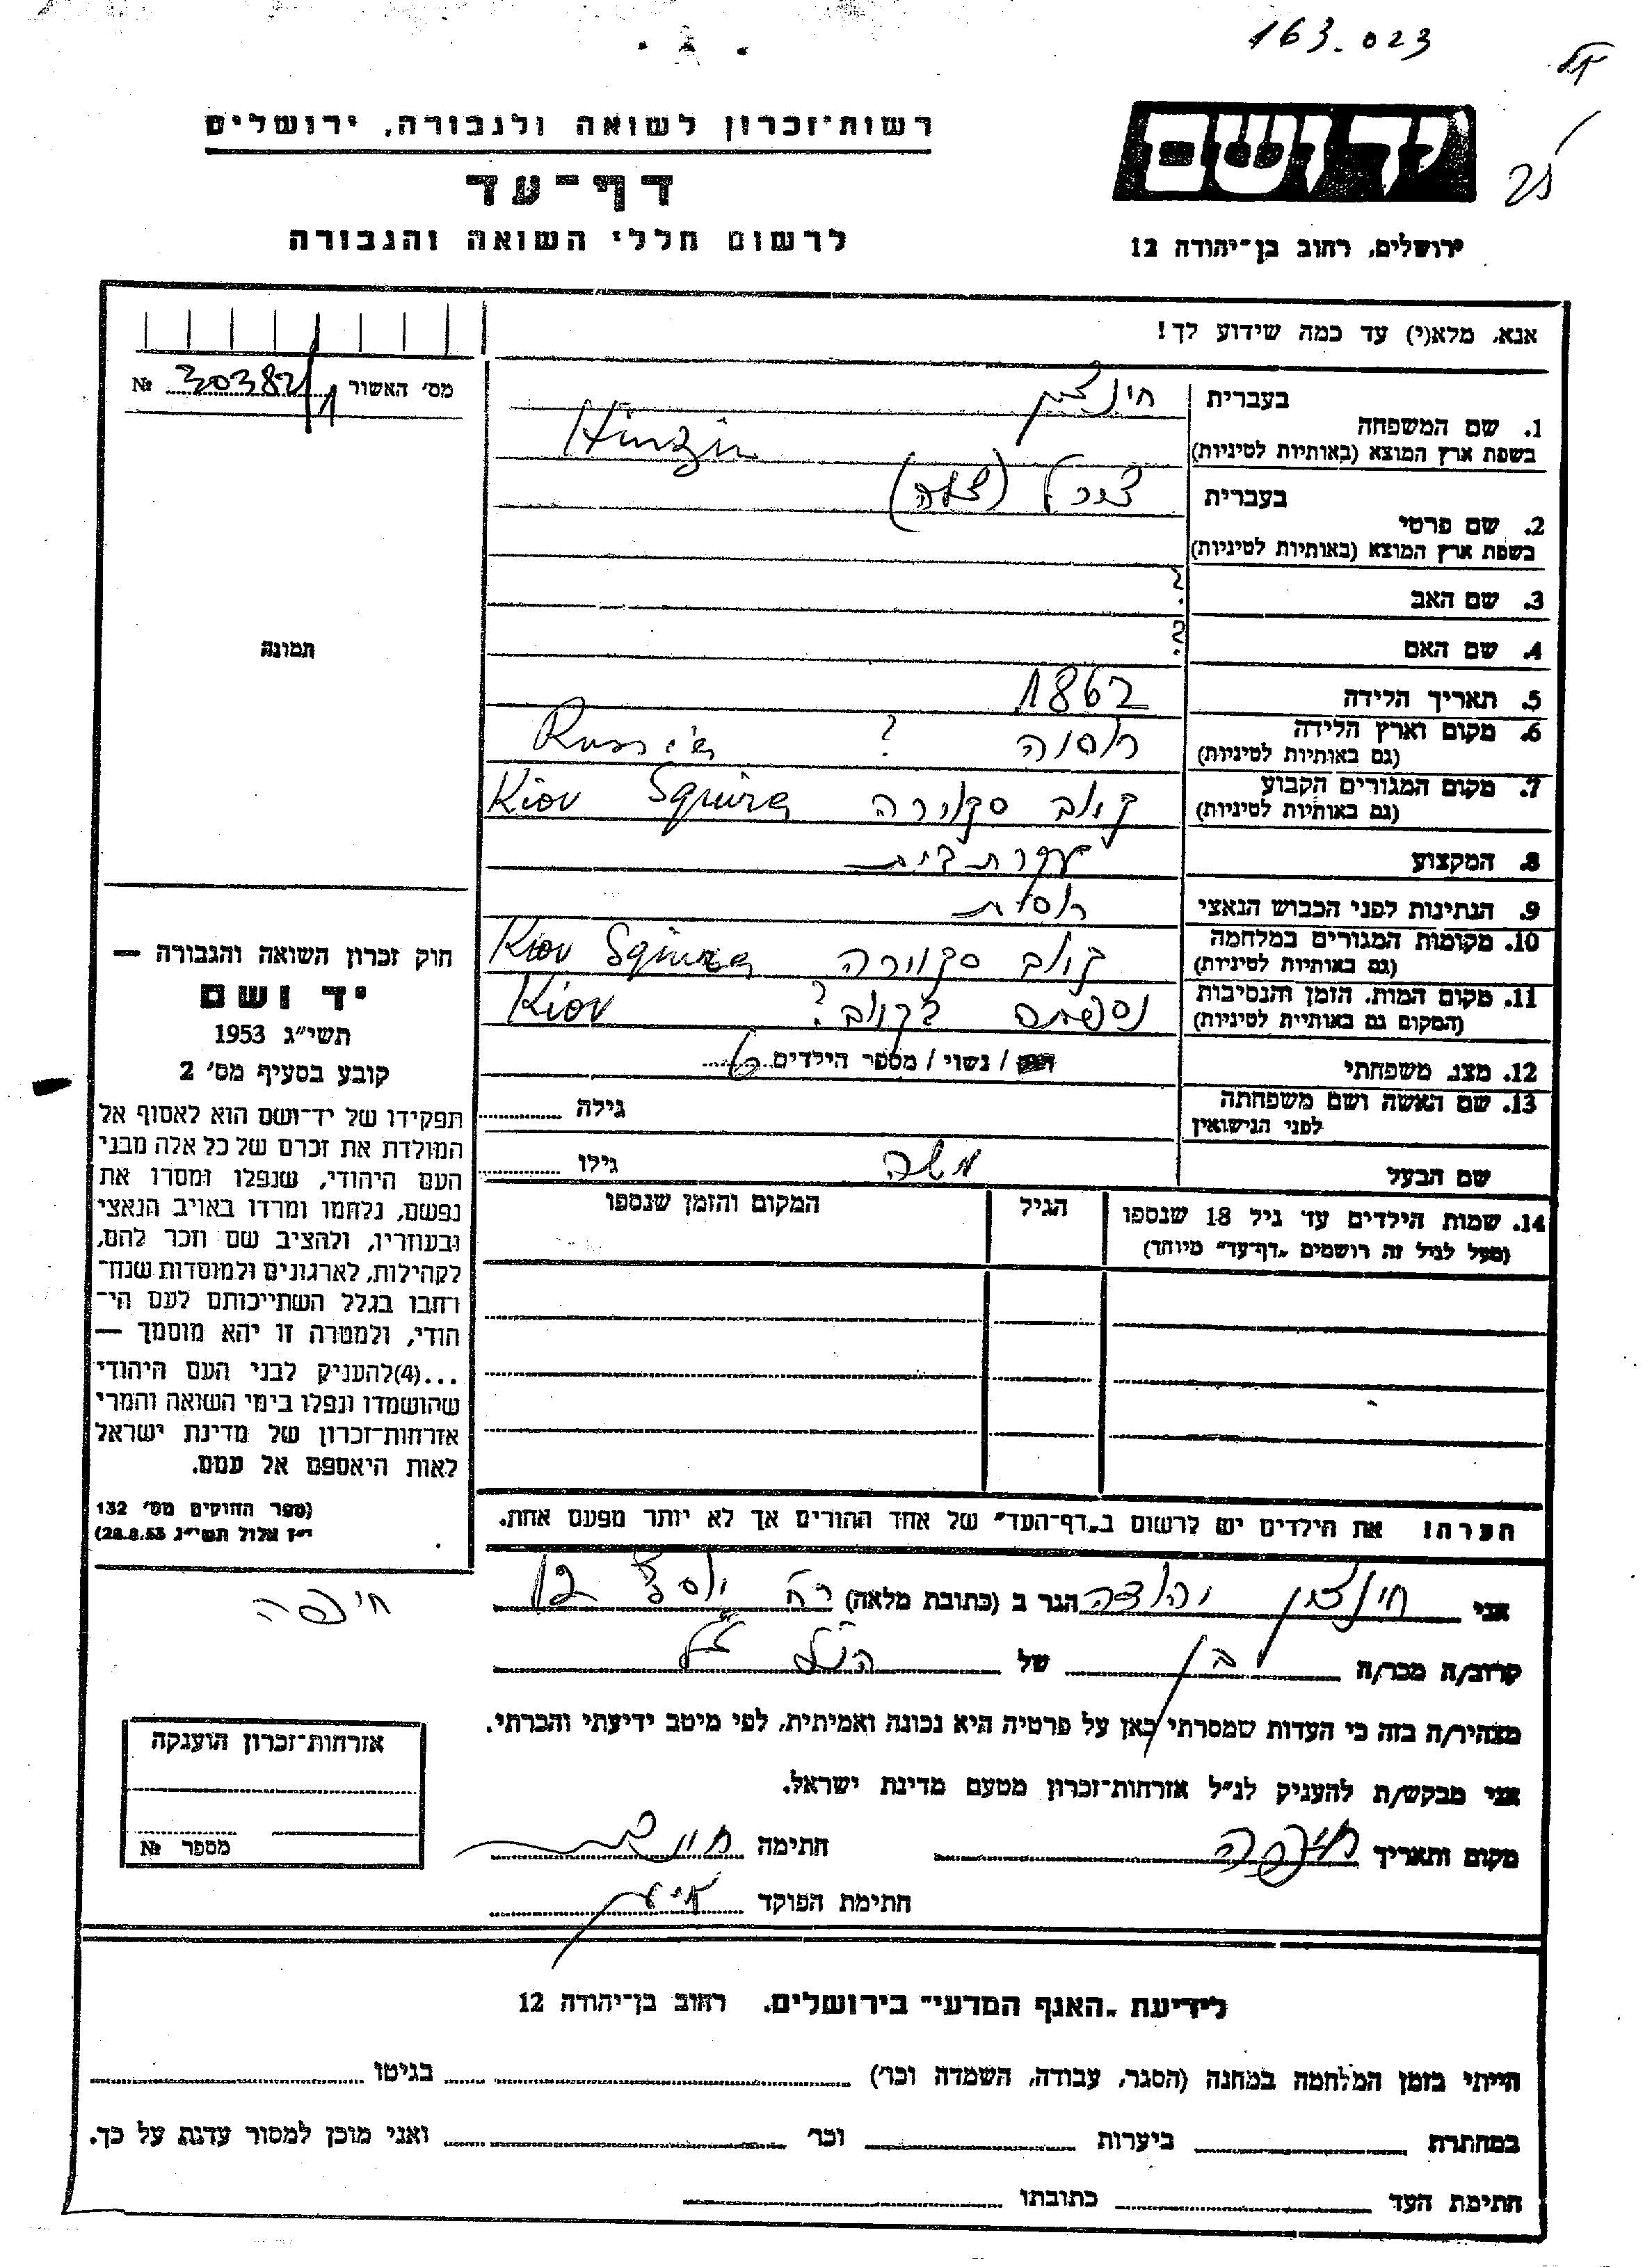 163.023
רשות־זכרון לשואה ולגבורה, ירושלים
יד ושם
דף־עד
לרשום חללי השואה והגבורה
ירושלים, רחוב בן־יהודה 12
אנא, מלא(י) עד כמה שידוע לך!
מס׳ האשור 30382/1 №
1. שם המשפחה
בעברית חינצין
בשפת ארץ המוצא (באותיות לטיניות) Hinzin
2. שם פרטי
בעברית
בשפת ארץ המוצא (באותיות לטיניות)
3. שם האב ?
4. שם האם ?
תמונה
5. תאריך הלידה 1862
6. מקום וארץ הלידה (גם באותיות לטיניות) רוסיה ? Russia
7. מקום המגורים הקבוע (גם באותיות לטיניות) קיוב סקוירה Kiov Sqvira
8. המקצוע עקרת בית
9. הנתינות לפני הכבוש הנאצי רוסית
10. מקומות המגורים במלחמה (גם באותיות לטיניות) קיוב סקוירה Kiov Sqvira
11. מקום המות, הזמן והנסיבות (המקום גם באותיות לטיניות) נספתה בקיוב? Kiov
12. מצב משפחתי רוק / נשוי / מספר הילדים 6
13. שם האשה ושם משפחתה לפני הנישואין גילה
שם הבעל משה גילו
14. שמות הילדים עד גיל 18 שנספו
(מעל לגיל זה רושמים „דף־עד" מיוחד)
הגיל
המקום והזמן שנספו
חוק זכרון השואה והגבורה —
יד ושם
תשי״ג 1953
קובע בסעיף מס׳ 2
תפקידו של יד־ושם הוא לאסוף אל
המולדת את זכרם של כל אלה מבני
העם היהודי, שנפלו ומסרו את
נפשם, נלחמו ומרדו באויב הנאצי
ובעוזריו, ולהציב שם וזכר להם,
לקהילות, לארגונים ולמוסדות שנח־
רחבו בגלל השתייכותם לעם הי־
הודי, ולמטרה זו יהא מוסמך —
...(4)להעניק לבני העם היהודי
שהושמדו ונפלו בימי השואה והמרי
אזרחות־זכרון של מדינת ישראל
לאות היאספם אל עמם.
(ספר החוקים מס׳ 132
י״ז אלול תשי״ג 28.8.53)
הערה! את הילדים יש לרשום ב„דף־העד" של אחד ההורים אך לא יותר מפעם אחת.
אני חינצין יהודה הגר ב (כתובת מלאה) רח יוסף 12
חיפה
קרוב/ה מכר/ה בן של הנ״ל
מצהיר/ה בזה כי העדות שמסרתי כאן על פרטיה היא נכונה ואמיתית, לפי מיטב ידיעתי והכרתי.
אני מבקש/ת להעניק לנ״ל אזרחות־זכרון מטעם מדינת ישראל.
מקום ותאריך חיפה חתימה
חתימת הפוקד
אזרחות־זכרון הוענקה
מספר №
לידיעת „האגף המדעי" בירושלים, רחוב בן־יהודה 12
הייתי בזמן המלחמה במחנה (הסגר, עבודה, השמדה וכו׳) בגיטו
במחתרת ביערות וכו׳ ואני מוכן למסור עדות על כך.
חתימת העד כתובתו